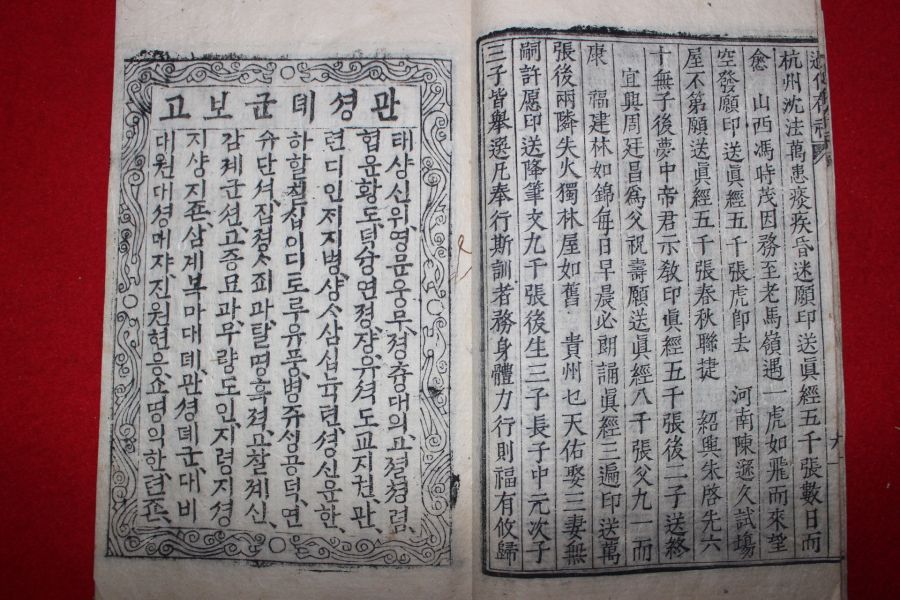 杭州沈法萬患痰疾昏迷願印送眞經五千張數日而
愈 山西馮時茂因務至老馬嶺遇一虎如飛而來望
空發願印送眞經五千張虎卽去 河南陳遜久試塲
屋不第願送眞經五千張春秋聯捷 紹興朱啓先六
十無子後夢中帝君示敎印眞經五千張後二子送終
宜興周廷昌爲父祝壽願送眞經八千張父九一而
康 福建林如錦每日早晨必朗誦眞經三遍印送萬
張後兩隣失火獨林屋如舊 貴州乜天佑娶三妻無
嗣許愿印送降筆文九千張後生三子長子中元次子
三子皆舉選凡奉行斯訓者務身體力行則福有攸歸
관셩뎨군보고
태샹신위,영문웅무,졍츙대의,고졀쳥렴,
협운황도,덕슝연졍,쟝유셕도교지권,관
련디인저지병,샹ᄉ삼십뉵텬,셩신운한,
하할칠십이디도루유풍,병쥬싱공덕,연
슈단셔,집졍ᄉ죄과탈명흑젹,고찰졔신,
감졔군션,고증묘과,무량도인,지령지셩
지샹지존,삼계복마대뎨,관셩뎨군,대비
대원대셩대쟈,진원현응,쇼명익한텬존,